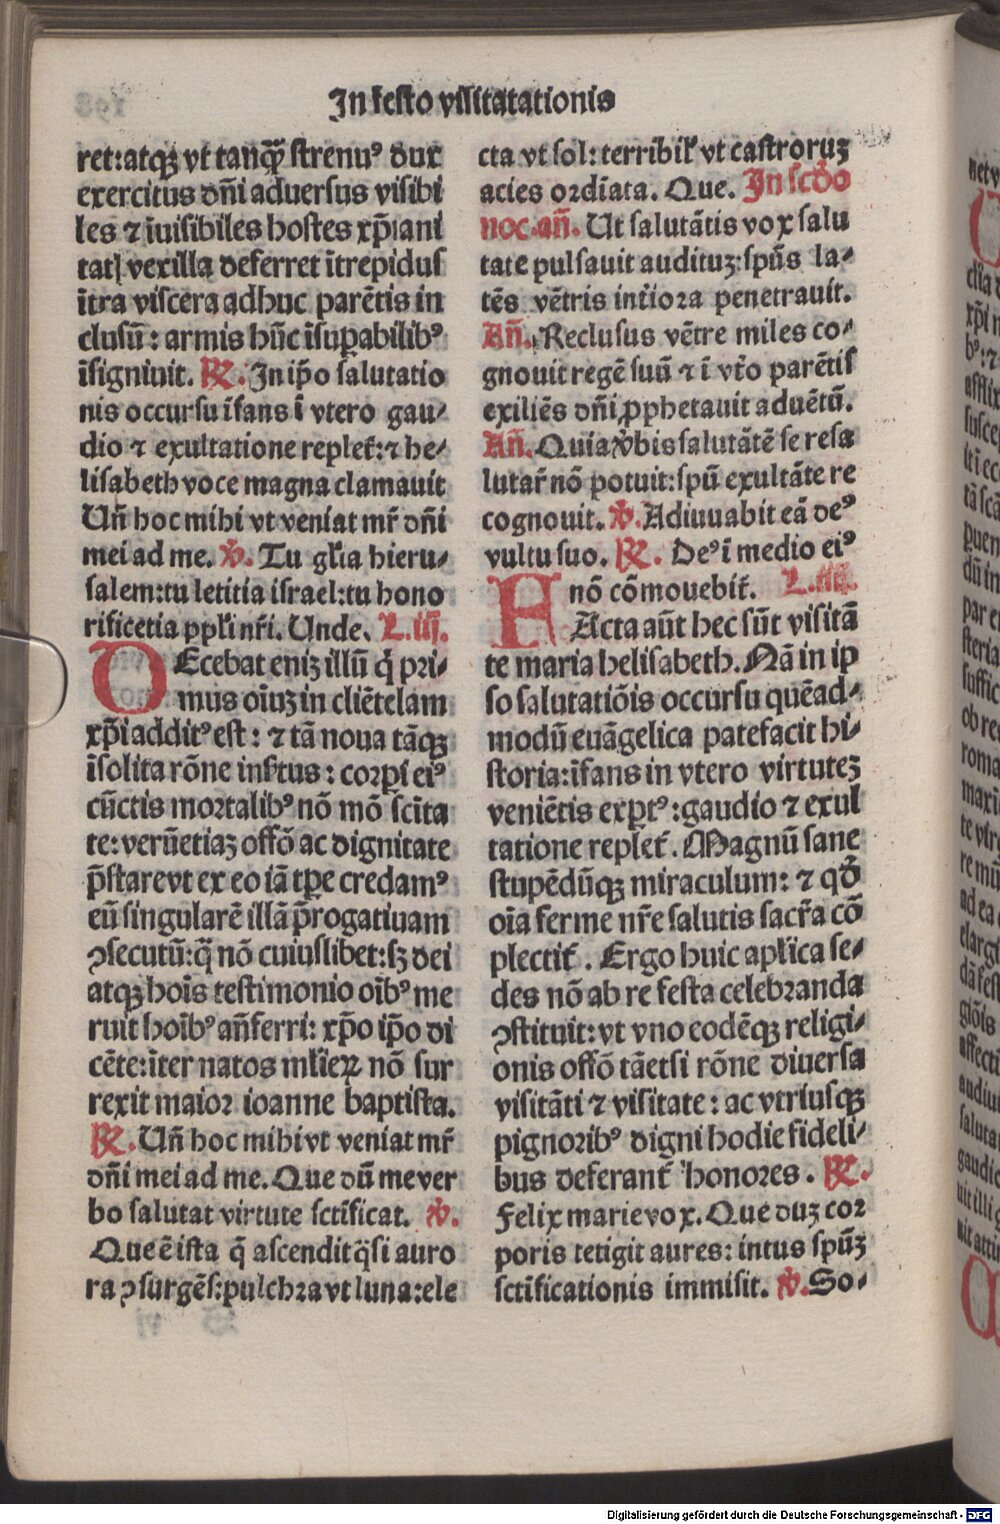 In festo visitatationis
ret:atqꝫ vt tanqꝫ̃ strenuꝰ dux
exercitus dñi aduersus visibi
les ⁊ ĩuisibiles hostes xp̃iani
tatꝭ vexilla deferret ĩtrepidus
ĩtra viscera adhuc parẽtis in
clusũ: armis hũc ĩsuꝑabilibꝰ
ĩsigniuit. ℟. In ip̃o salutatio
nis occursu ĩfans ĩ vtero gau⸗
dio ⁊ exultatione replet᷑:⁊ he⸗
lisabeth voce magna clamauit
Uñ hoc mihi vt veniat mr̃ dñi
mei ad me. ℣. Tu gl̃ia hieru⸗
salem:tu letitia israel:tu hono
rificetia ppl̃i nr̃i. Unde. L.iij.
DEcebat eniꝫ illũ q̃ pri⸗
mus oĩuꝫ in cliẽtelam
xp̃i additꝰ est: ⁊ tã noua tãqꝫ
ĩsolita rõne inſtus: corpĩ eiꝰ
cũctis mortalibꝰ nõ mõ sc̃ita
te:verũetiaꝫ offõ ac dignitate
p̃staret vt ex eo iã tꝑe credamꝰ
eũ singularẽ illã p̃rogatiuam
ꝯsecutũ:q̃ nõ cuiuslibet:sꝫ dei
atqꝫ hoĩs testimonio oĩbꝰ me
ruit hoĩbꝰ añferri: xp̃o ip̃o di
cẽte:ĩter natos ml̃ieꝝ nõ sur
rexit maior ioanne baptista.
℟. Uñ hoc mihi vt veniat mr̃
dñi mei ad me. Que dũ me ver
bo salutat virtute sctĩficat. ℣.
Que ẽ ista q̃ ascendit q̃si auro
ra ꝯsurgẽs:pulchra vt luna:ele
cta vt sol: terribil̃ vt castroruꝫ
acies ordĩata. Que. In sc̃do
noc.añ. Ut salutãtis vox salu
tate pulsauit audituꝫ:spũs la⸗
tẽs vẽtris inťiora penetrauit.
Añ. Reclusus vẽtre miles co⸗
gnouit regẽ suũ ⁊ ĩ vťo parẽtis
exiliẽs dñi ꝓphetauit aduẽtũ.
Añ. Quia v̓bis salutãtẽ se resa
lutar̃ nõ potuit:spũ exultãte re
cognouit. ℣. Adiuuabit eã deꝰ
vultu suo. ℟. Deꝰ ĩ medio eiꝰ
nõ cõmouebit᷑. L.iiij.
FActa aũt hec sũt visitã
te maria helisabeth. Nã in ip
so salutatiõis occursu quẽad⸗
modũ euãgelica patefacit hi⸗
storia:ĩfans in vtero virtuteꝫ
veniẽtis exꝑtꝰ:gaudio ⁊ exul
tatione replet᷑. Magnũ sane
stupẽdũqꝫ miraculum: ⁊ qd̓
oĩa ferme nr̃e salutis sacr̃a cõ
plectit᷑. Ergo huic apl̃ica se⸗
des nõ ab re festa celebranda
ꝯstituit:vt vno eodẽqꝫ religi⸗
onis offõ tãetsi rõne diuersa
visitãti ⁊ visitate: ac vtriusqꝫ
pignoribꝰ digni hodie fideli⸗
bus deferant᷑ honores. ℟.
Felix marie vox. Que duꝫ cor
poris tetigit aures: intus spũꝫ
sctĩficationis immisit. ℣. So⸗
Digitalisierung gefördert durch die Deutsche Forschungsgemeinschaft - DFG